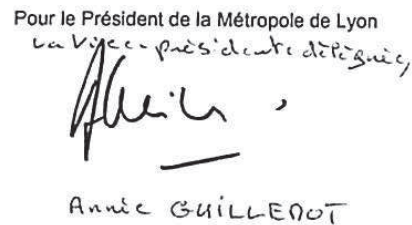 Pour le Président de la Métropole de Lyon
La Vice-présidente déléguée,
Annie GUILLEMOT